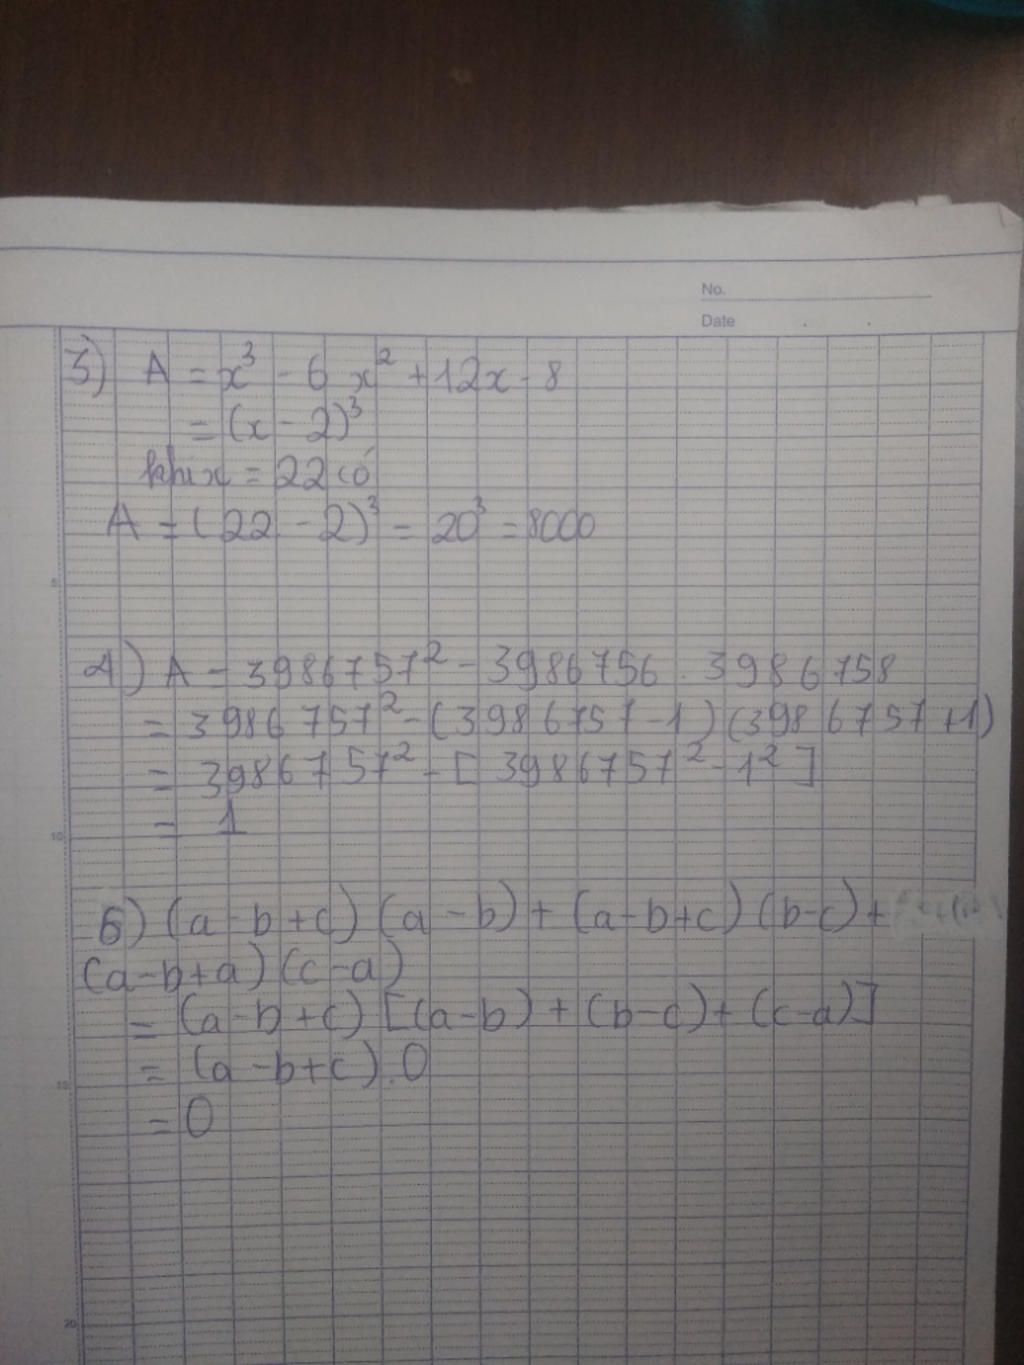 No.
Date
3) A = x³ - 6x² + 12x - 8
= (x - 2)³
khi x = 22 có
A = (22 - 2)³ = 20³ = 8000
5
4) A = 3986757² - 3986756 . 3986758
= 3986757² - (3986757 - 1)(3986757 + 1)
= 3986757² - [3986757² - 1²]
= 1
10
6) (a - b + c)(a - b) + (a - b + c)(b - c) +
(a - b + a)(c - a)
= (a - b + c)[(a - b) + (b - c) + (c - a)]
= (a - b + c) . 0
15
= 0
20